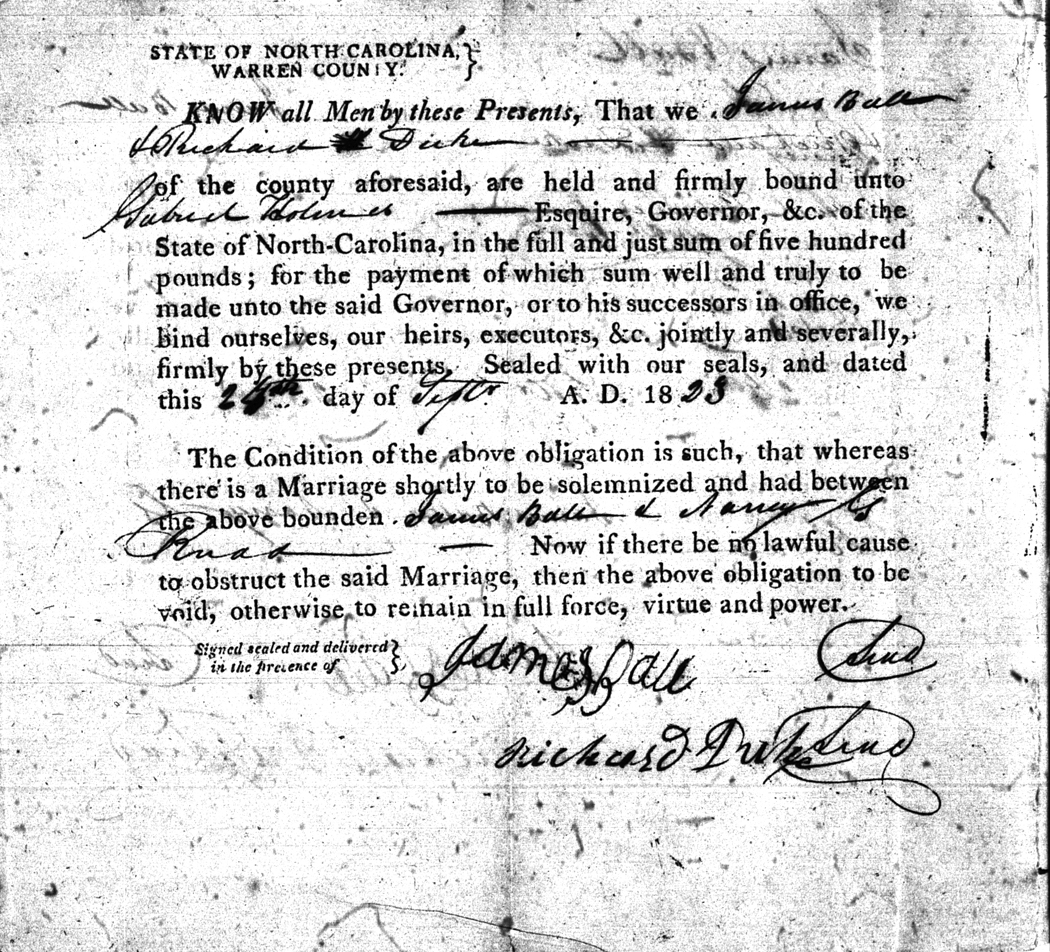 STATE OF NORTH CAROLINA,}
WARREN COUNTY.
KNOW all Men by these Presents, That we James Ball
& Richard Duke
of the county aforesaid, are held and firmly bound unto
Gabriel Holmes Esquire, Governor, &c. of the
State of North-Carolina, in the full and just sum of five hundred
pounds; for the payment of which sum well and truly to be
made unto the said Governor, or to his successors in office, we
bind ourselves, our heirs, executors, &c. jointly and severally,
firmly by these presents. Sealed with our seals, and dated
this day of Septr A. D. 1823
The Condition of the above obligation is such, that whereas
there is a Marriage shortly to be solemnized and had between
the above bounden James Ball & Nancy
Now if there be no lawful cause
to obstruct the said Marriage, then the above obligation to be
void, otherwise to remain in full force, virtue and power.
Signed sealed and delivered}
in the presence of
James Ball Seal
Richard Duke Seal